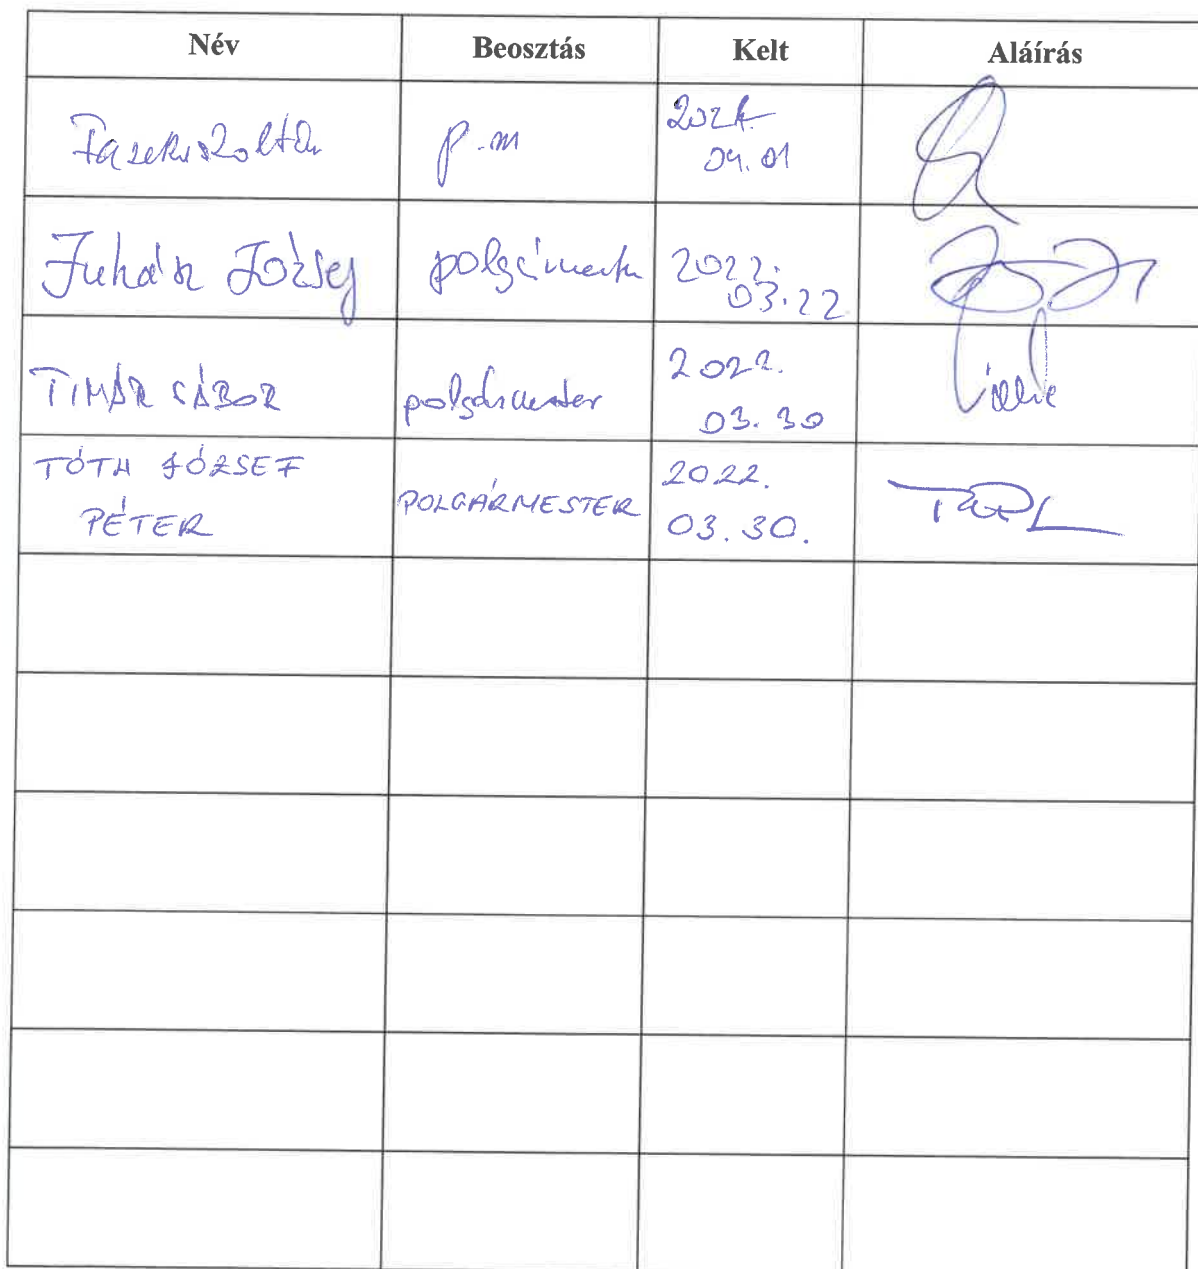 Név Beosztás Kelt Aláírás
Fazekas Zoltán p.m
04.01
Juhász József polgármester 2022.
03.22
TIMÁR GÁBOR polgármester 2022.
03.30
TÓTH JÓZSEF
PÉTER POLGÁRMESTER 2022.
03.30.